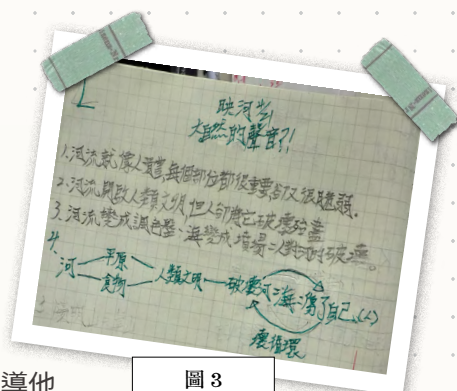 大自然的聲音?!
1.河流就像人類,每個部位都很重要,卻又很脆弱。
2.河流開啟人類文明,但人卻將它破壞殆盡
3.河流變成調色盤、海變成墳場=人對河的破壞。
4.
河
平原
食物
人類文明
破壞河
海
傷了自己(人)
壞循環
導他
圖3